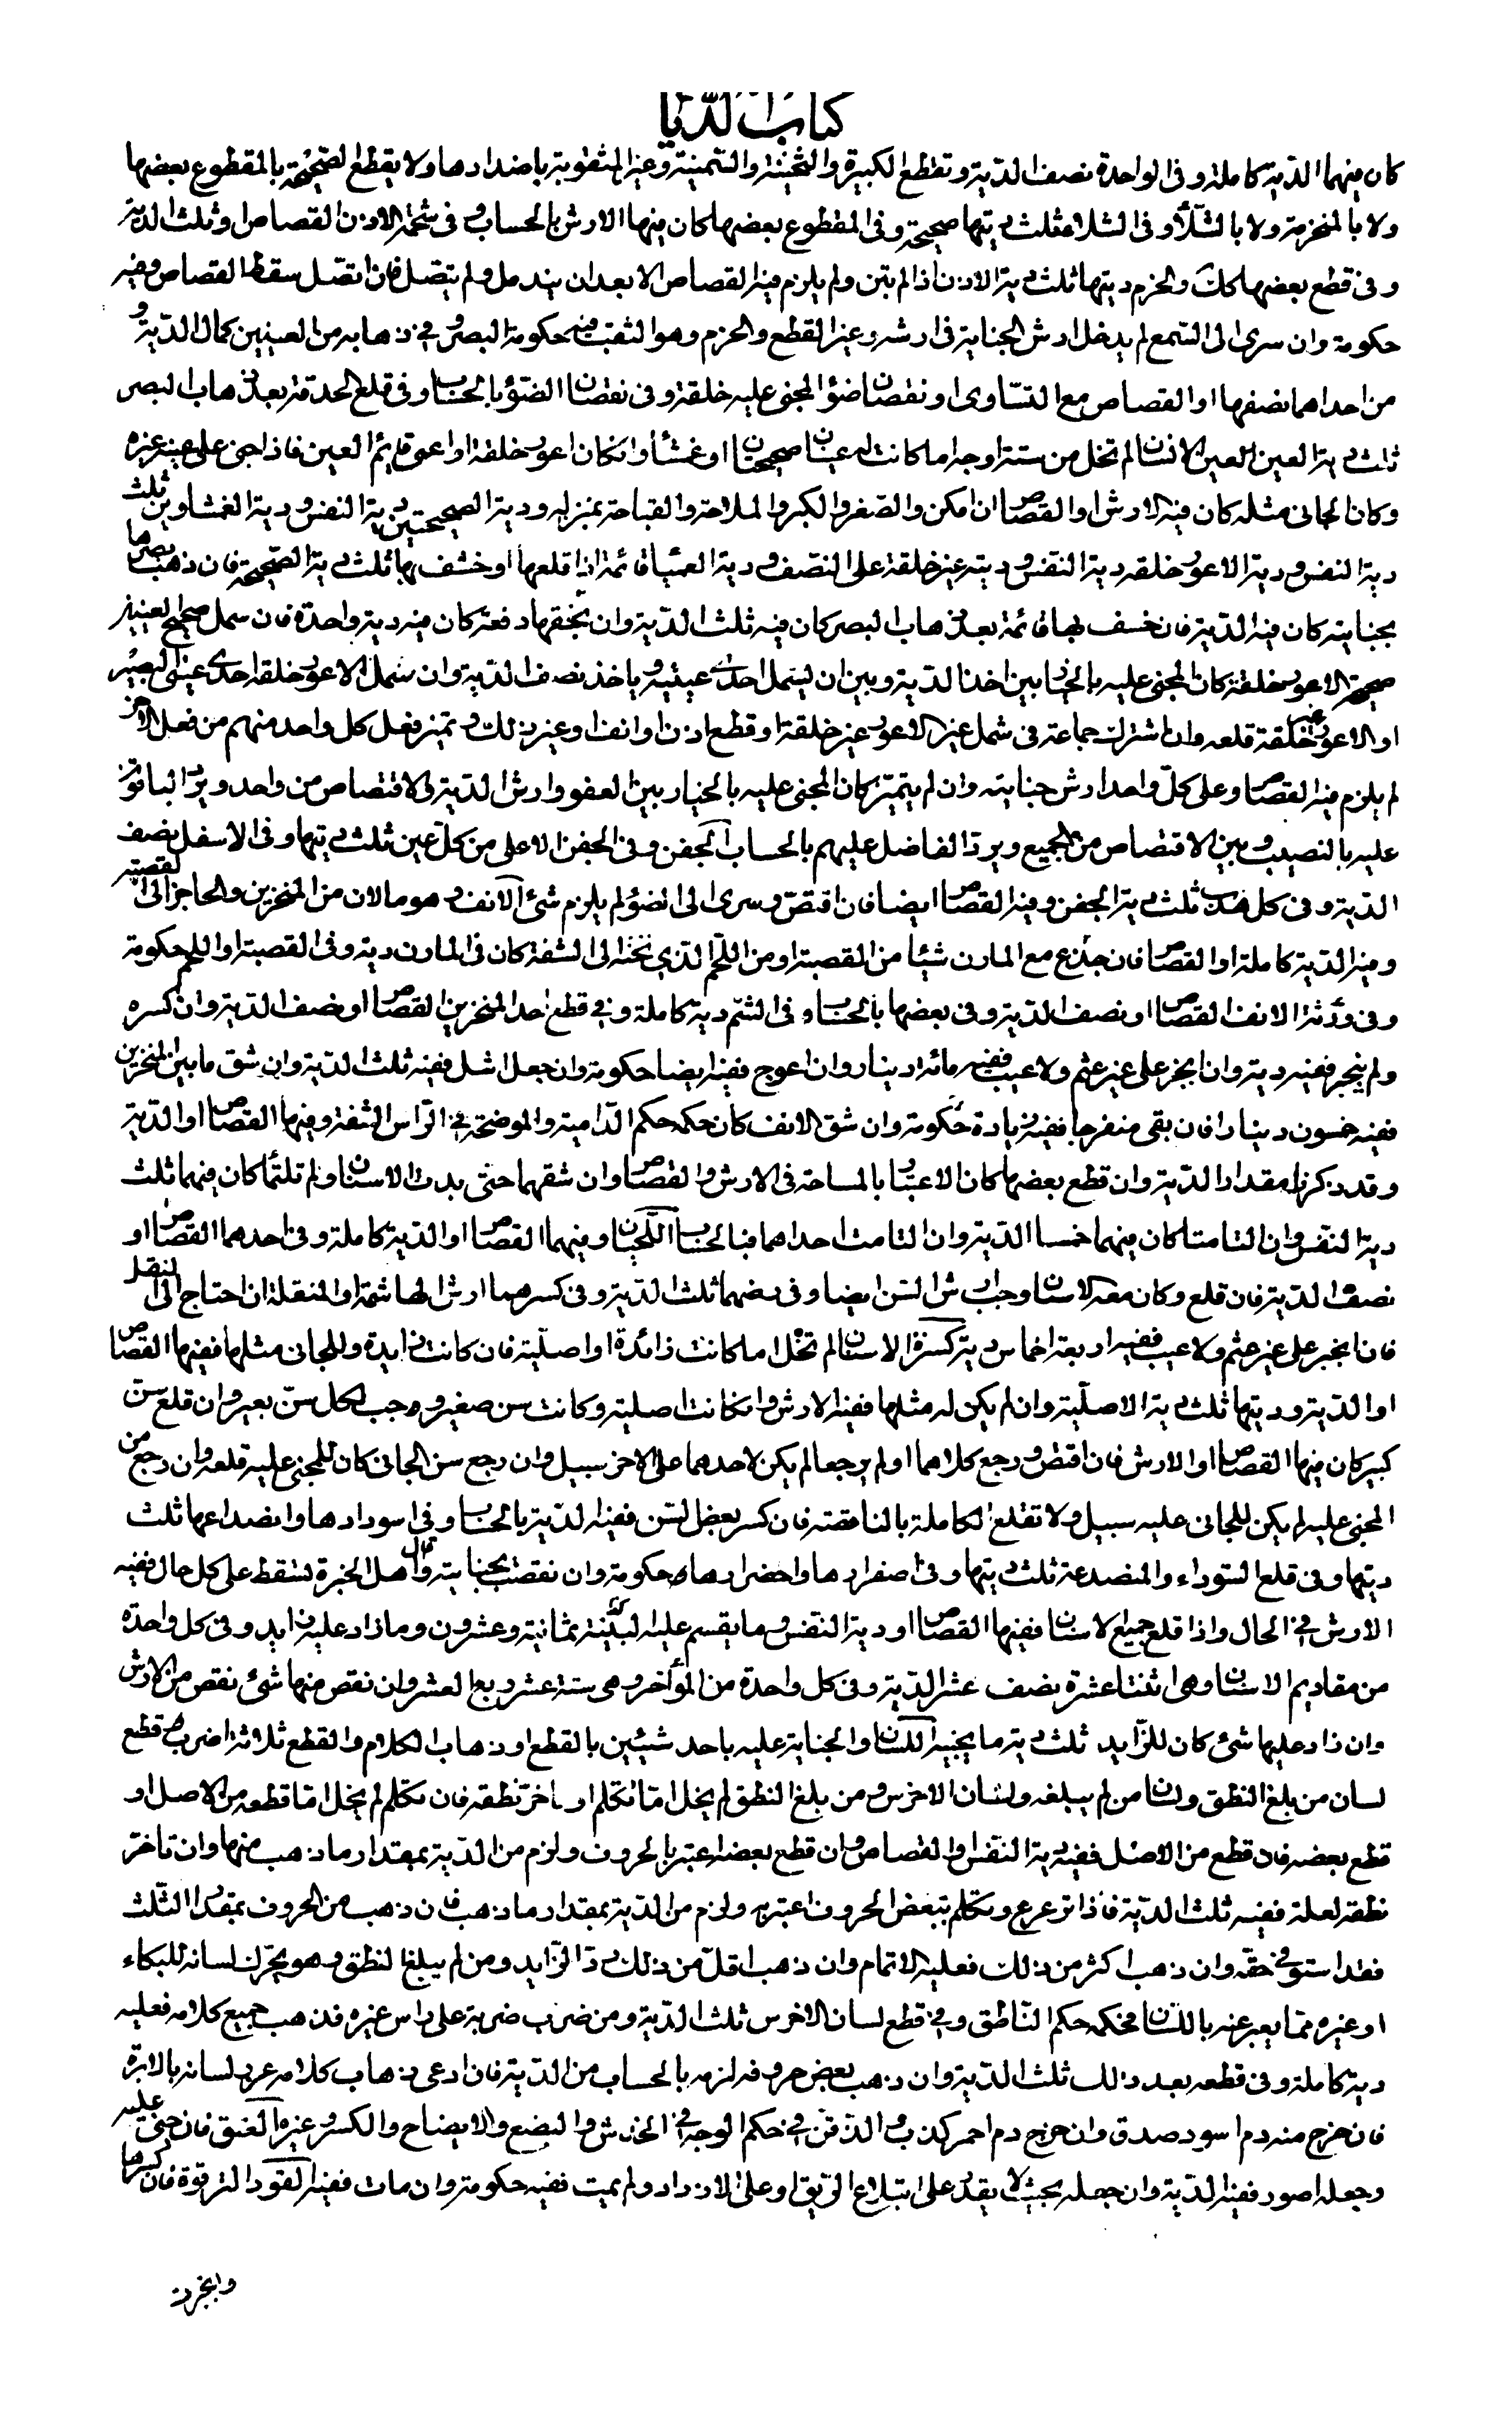 كتاب الديات
كان فيهما الدية كاملة وفي الواحدة نصف الدية وتقطع الكبيرة والثخينة والسمينة وغير المثقوبة باضدادها ولا يقطع الصحيحة بالمقطوع بعضها
ولا بالمنخزمة ولا بالشلاء وفي الشلاء ثلث ديتها صحيحة وفي المقطوع بعضها كان فيها الارش بالحساب وفي شحمة الاذن القصاص او ثلث الدية
وفي قطع بعضها كك والخرم ديتها ثلث دية الاذن اذا لم تبن ولم يلزم فيه القصاص الا بعد ان يندمل ولم يتصل فان اتصل سقط القصاص وفيه
حكومة وان سرى الى السمع لم يدخل ارش الجناية في ارشه وغير القطع والخرم وهو الثقب فيه حكومة البصر وفي ذهابه من العينين كمال الدية و
من احداهما نصفها او القصاص مع التساوي او نقصان ضوء المجني عليه خلقة وفي نقصان الضوء بالحساب وفي قلع الحدقة بعد ذهاب البصر
ثلث دية العين العين الانسان لم تخل من ستة اوجه اما كانت له عينان صحيحتان او غمشا وان كان اعور خلقة او اعمى قايم العين فاذا جنى على عين غيره
وكان الجاني مثله كان فيه الارش او القصاص ان امكن والصغر والكبر والملاحة والقباحة بمنزله ودية الصحيحتين دية النفس ودية الغمشاوين ثلث
دية النفس ودية الاعور خلقه دية النفس ودية غير خلقة على النصف ودية العمياء قائمة اذا قلعها او خسف بها ثلث دية الصحيحة فان ذهب بصرها
بجنايته كان فيه الدية فان خسف بها قائمة بعد ذهاب البصر كان فيه ثلث الدية وان بخقها دفعة كان فيه دية واحدة فان سمل صحيح العينين
صحيحة الاعور خلقة كان المجني عليه بالخيار بين اخذ الدية وبين ان يسمل احدى عينيه وياخذ نصف الدية وان سمل الاعور خلقه احدى عيني البصير
او الاعور غير خلقة قلعه وان اشترك جماعة في سمل عين الاعور غير خلقة او قطع اذن او انف او غير ذلك وتميز فعل كل واحد منهم من فعل الاخر
لم يلزم فيه القصاص وعلى كل واحد ارش جنايته وان لم يتميز كان المجني عليه بالخيار بين العفو وارش الدية والاقتصاص من واحد ويرد الباقون
عليه بالنصيب وبين الاقتصاص من الجميع ويرد الفاضل عليهم بالحساب الجفن وفي الجفن الاعلى من كل عين ثلث ديتها وفي الاسفل نصف
الدية وفي كل هدب ثلث دية الجفن وفيه القصاص ايضا فان اقتص وسرى الى الضوء لم يلزم شئ الانف وهو مالان من المنخرين والحاجز الى القصبة
وفيه الدية كاملة او القصاص فان جذع مع المارن شيئا من القصبة او من اللحم الذي تحته الى الشفة كان في المارن دية وفي القصبة او اللحم حكومة
وفي روثة الانف القصاص او نصف الدية وفي بعضها بالحساب وفي الشم دية كاملة وفي قطع احد المنخرين القصاص او نصف الدية وان كسره
ولم ينجبر ففيه دية وان انجبر على غير عثم ولا عيب ففيه مائة دينار وان اعوج ففيه ايضا حكومة وان جعل اشل ففيه ثلث الدية وان شق ما بين المنخرين
ففيه خمسون دينارا فان بقى منفرجا ففيه زيادة حكومة وان شق الانف كان حكمه حكم الدامية والموضحة في الراس الشفة وفيها القصاص او الدية
وقد ذكرنا مقدار الدية وان قطع بعضها كان الاعتبار بالمساحة في الارش والقصاص وان شقهما حتى بدت الاسنان ولم تلتئما كان فيهما ثلث
دية النفس وان التامتا كان فيهما خمسا الدية وان التامت احداهما فبالحساب اللحيان وفيهما القصاص او الدية كاملة وفي احدهما القصاص او
نصف الدية فان قلع وكان معه الاسنان وجب ارش السن ايضا وفي رضهما ثلث الدية وفي كسرهما ارش الهاشمة او المنقلة ان احتاج الى النقل
فان انجبر على غير عثم ولا عيب ففيه اربعة اخماس دية كسره الاسنان لم تخل اما كانت زائدة او اصلية فان كانت زايدة وللجاني مثلها ففيها القصاص
او الدية وديتها ثلث دية الاصلية وان لم يكن له مثلها ففيه الارش وان كانت اصلية وكانت سن صغير وجب لكل سن بعير وان قلع سن
كبير كان فيها القصاص او الارش فان اقتص ورجع كلاهما او لم يرجعا لم يكن لاحدهما على الاخر سبيل وان رجع سن الجاني كان للمجني عليه قلعه وان رجع من
المجني عليه لم يكن للجاني عليه سبيل ولا تقلع الكاملة بالناقصة فان كسر بعض السن ففيه الدية بالحساب وفي اسودادها وانصداعها ثلث
ديتها وفي قلع السوداء والمنصدعة ثلث ديتها وفي اصفرارها واخضرارها حكومة وان نقصت بجنايته وقال اهل الخبرة تسقط على كل حال ففيه
الارش في الحال واذا قلع جميع الاسنان ففيها القصاص او دية النفس وما يقسم عليه الدية ثمانية وعشرون وما زاد عليه زايد وفي كل واحدة
من مقاديم الاسنان وهي اثنتا عشرة نصف عشر الدية وفي كل واحدة من المؤاخر وهي ستة عشر ربع العشر وان نقص منها شئ نقص من الارش
وان زاد عليها شئ كان للزايد ثلث دية ما يجنبه اللسان والجناية عليه باحد شيئين بالقطع او ذهاب الكلام والقطع ثلاثة اضرب قطع
لسان من بلغ النطق ولسان من لم يبلغه ولسان الاخرس ومن بلغ النطق لم يخل اما تكلم او تاخر نطقه فان تكلم لم يخل اما قطعه من الاصل او
قطع بعضه فان قطع من الاصل ففيه دية النفس والقصاص وان قطع بعضه اعتبر بالحروف ولزم من الدية بمقدار ما ذهب منها وان تاخر
نطقه لعلة ففيه ثلث الدية فاذا ترعرع وتكلم ببعض الحروف اعتبر به ولزم من الدية بمقدار ما ذهب فان ذهب من الحروف بمقدار الثلث
فقد استوفى حقه وان ذهب اكثر من ذلك فعليه الاتمام وان ذهب اقل من ذلك رد الزايد ومن لم يبلغ النطق وهو يحرك لسانه للبكاء
او غيره مما يعبر عنه باللسان فحكمه حكم الناطق وفي قطع لسان الاخرس ثلث الدية ومن ضرب ضربة على راس غيره فذهب جميع كلامه فعليه
دية كاملة وفي قطعه بعد ذلك ثلث الدية وان ذهب بعض حروفه لزمه بالحساب من الدية فان ادعى ذهاب كلامه غرز لسانه بالابرة
فان خرج منه دم اسود صدق وان خرج دم احمر كذب الذقن في حكم الوجه في الخدش والبضع والايضاح والكسر وغيره العنق فان جنى عليه
وجعله اصور ففيه الدية وان جعله بحيث لا يقدر على ابتلاع الريق او على الازدراد ولم يمت ففيه حكومة وان مات ففيه القود الترقوة فان كسرها
وانجبرت